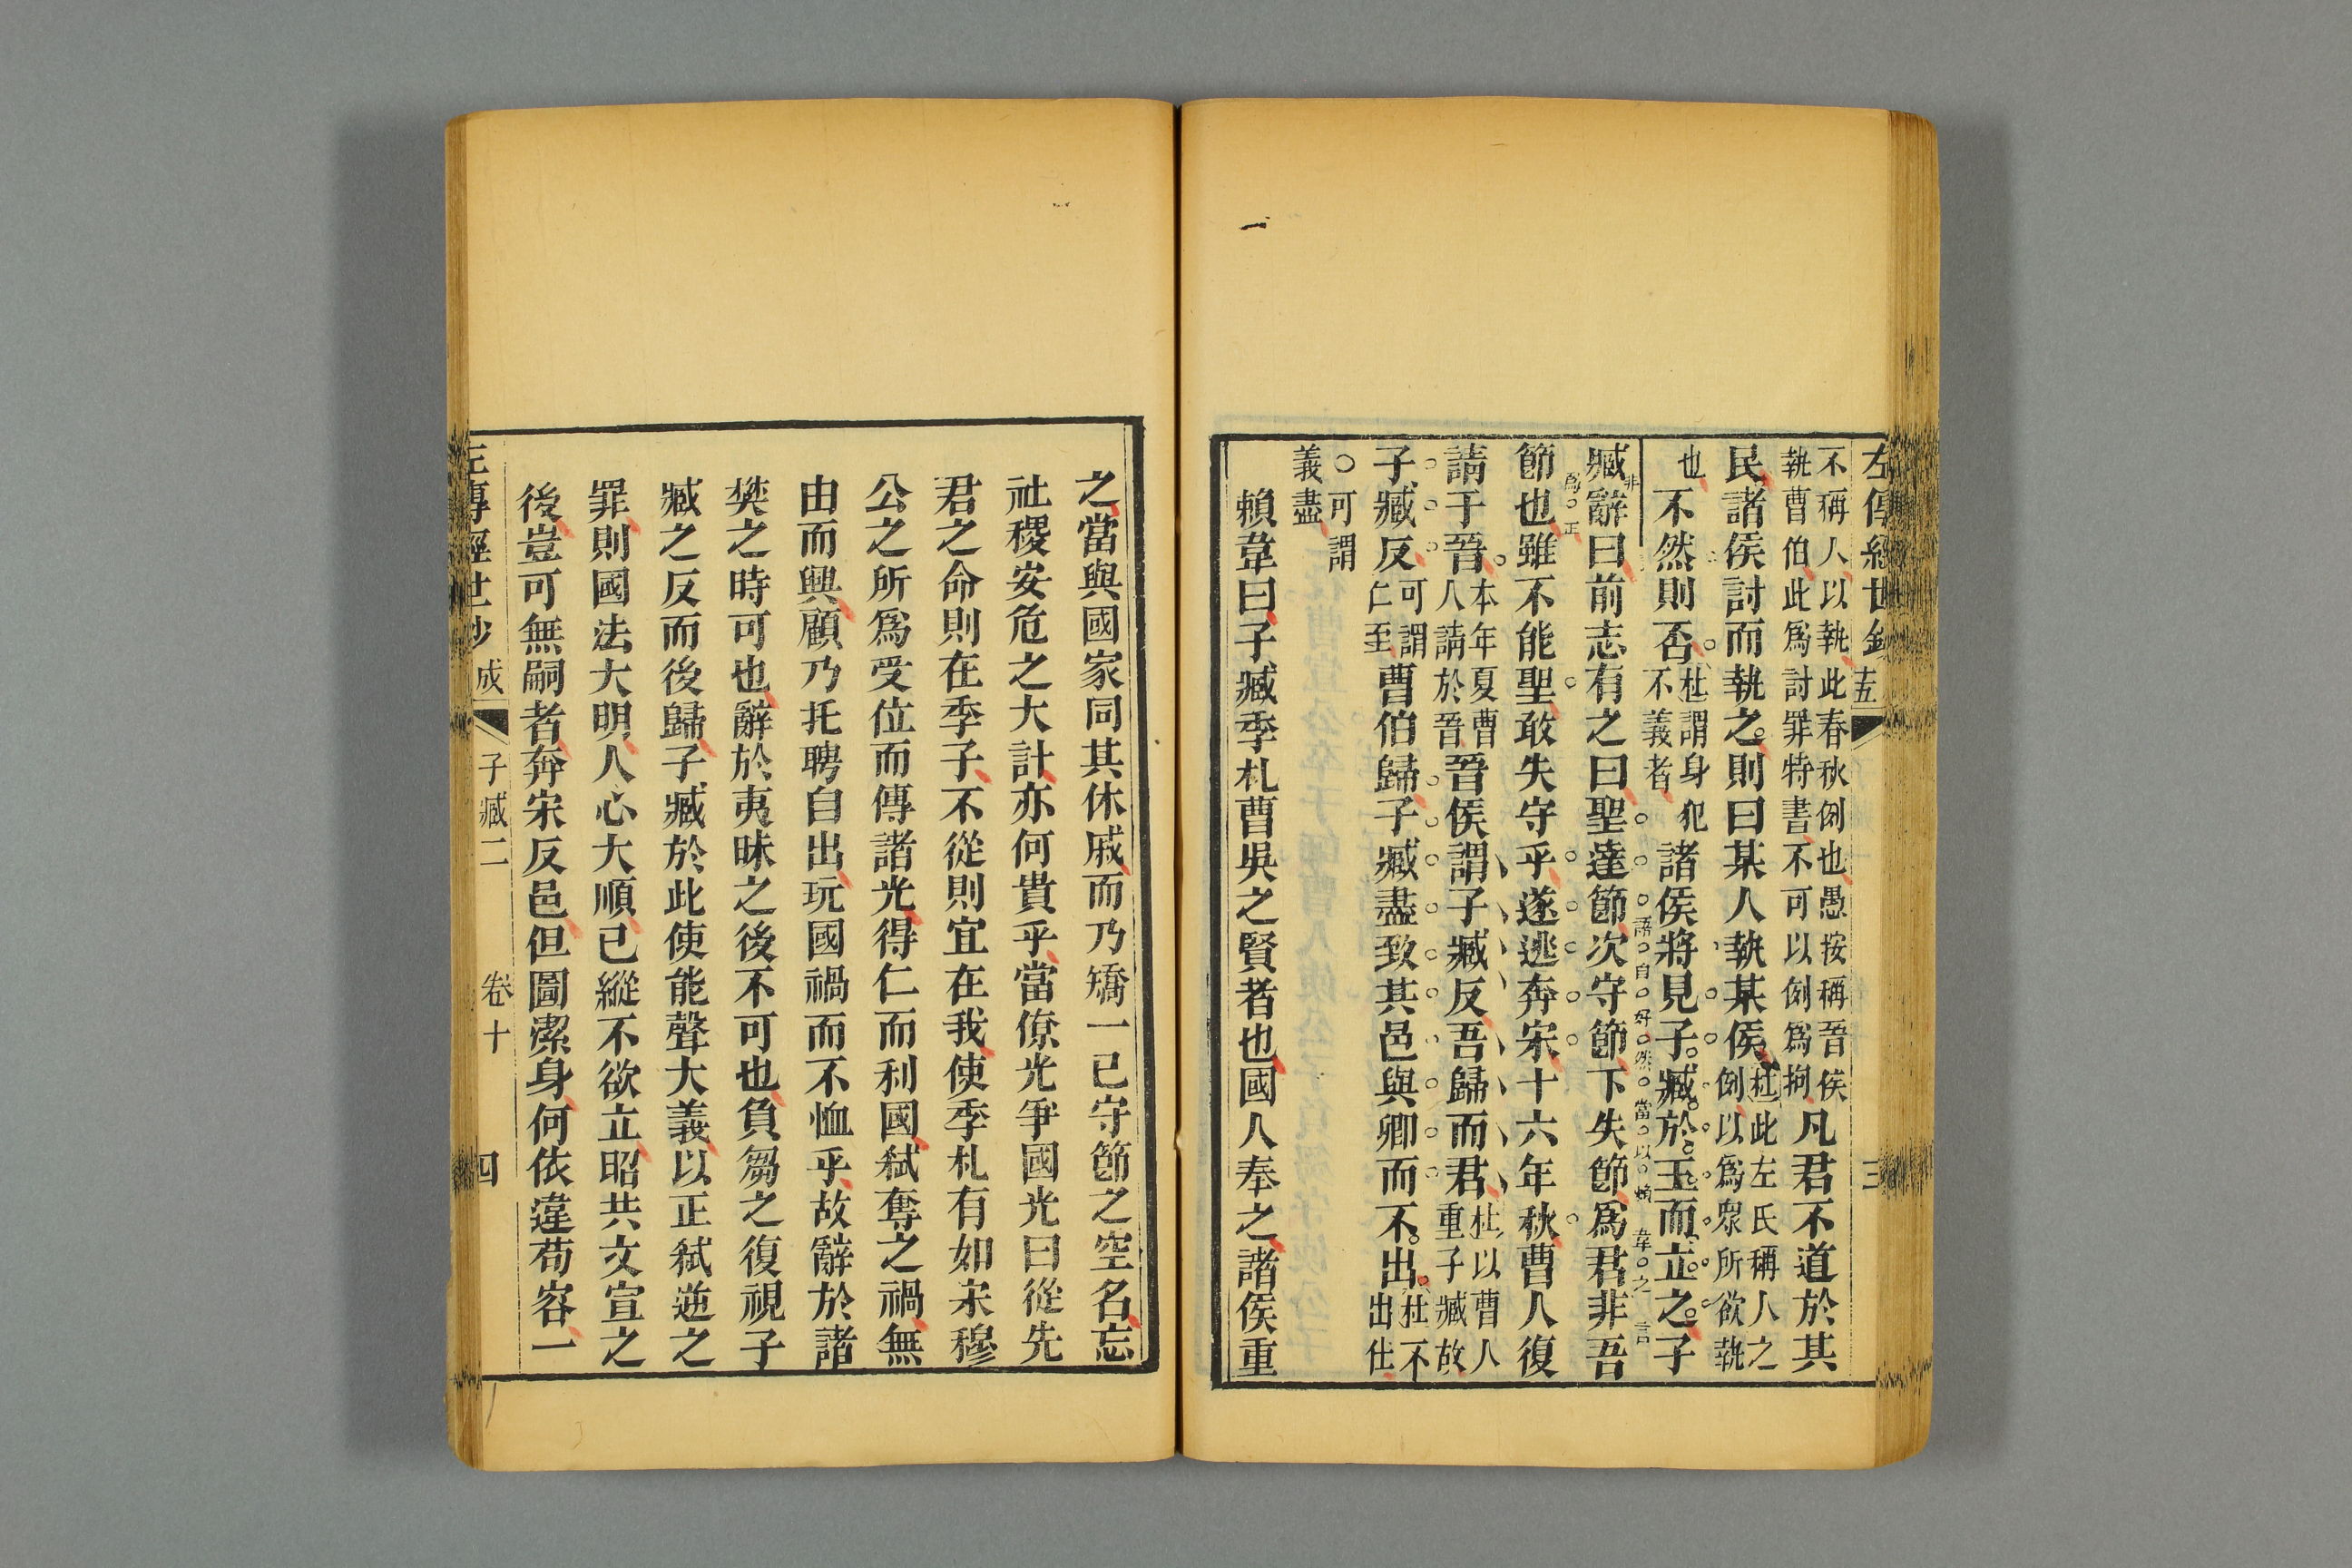 左傳經世鈔
十五
三
不稱人以執此春秋例也愚按稱晉侯
執曹伯此爲討罪特書不可以例爲拘
凡君不道於其
民諸侯討而執之則曰某人執某侯
杜此左氏稱人之
例以爲眾所欲執
也
不然則否
杜謂身犯
不義者
諸侯將見子臧於王而立之子
臧辭曰前志有之曰聖達節次守節下失節爲君非吾
節也雖不能聖敢失守乎遂逃奔宋十六年秋曹人復
請于晉
本年夏曹
人請於晉
晉侯謂子臧反吾歸而君
杜以曹人
重子臧故
子臧反
可謂
仁至
曹伯歸子臧盡致其邑與卿而不出
杜不
出仕
○可謂
義盡
賴韋曰子臧季札曹吳之賢者也國人奉之諸侯重
之當與國家同其休戚而乃矯一已守節之空名忘
社稷安危之大計亦何貴乎當僚光爭國光曰從先
君之命則在季子不從則宜在我使季札有如宋穆
公之所爲受位而傳諸光得仁而利國弑奪之禍無
由而興顧乃托聘自出玩國禍而不恤乎故辭於諸
樊之時可也辭於夷昧之後不可也負芻之復視子
臧之反而後歸子臧於此使能聲大義以正弑逆之
罪則國法大明人心大順已縱不欲立昭共文宣之
後豈可無嗣者奔宋反邑但圖潔身何依違苟容一
左傳經世鈔
成
子臧二
卷十
四